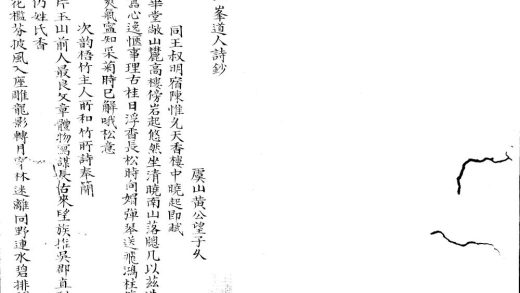 峯道人詩鈔
虞山黃公望子久
同王叔明宿陳惟允天香樓中曉起即賦
華堂敞山麓高樓傍岩起悠然坐清曉南山落牕几以茲
心逸愜事理古桂日浮香長松時向媚彈琴送飛鴻柱
爽氣寧知采菊時已解哦松意
次韵梧竹主人所和竹所詩奉簡
片玉山前人最良文章體物馮謀長佑來望族推吳郡直
仍姓氏香
花檻芬披風入座雕龍影轉月穿林迷離向野連水碧排